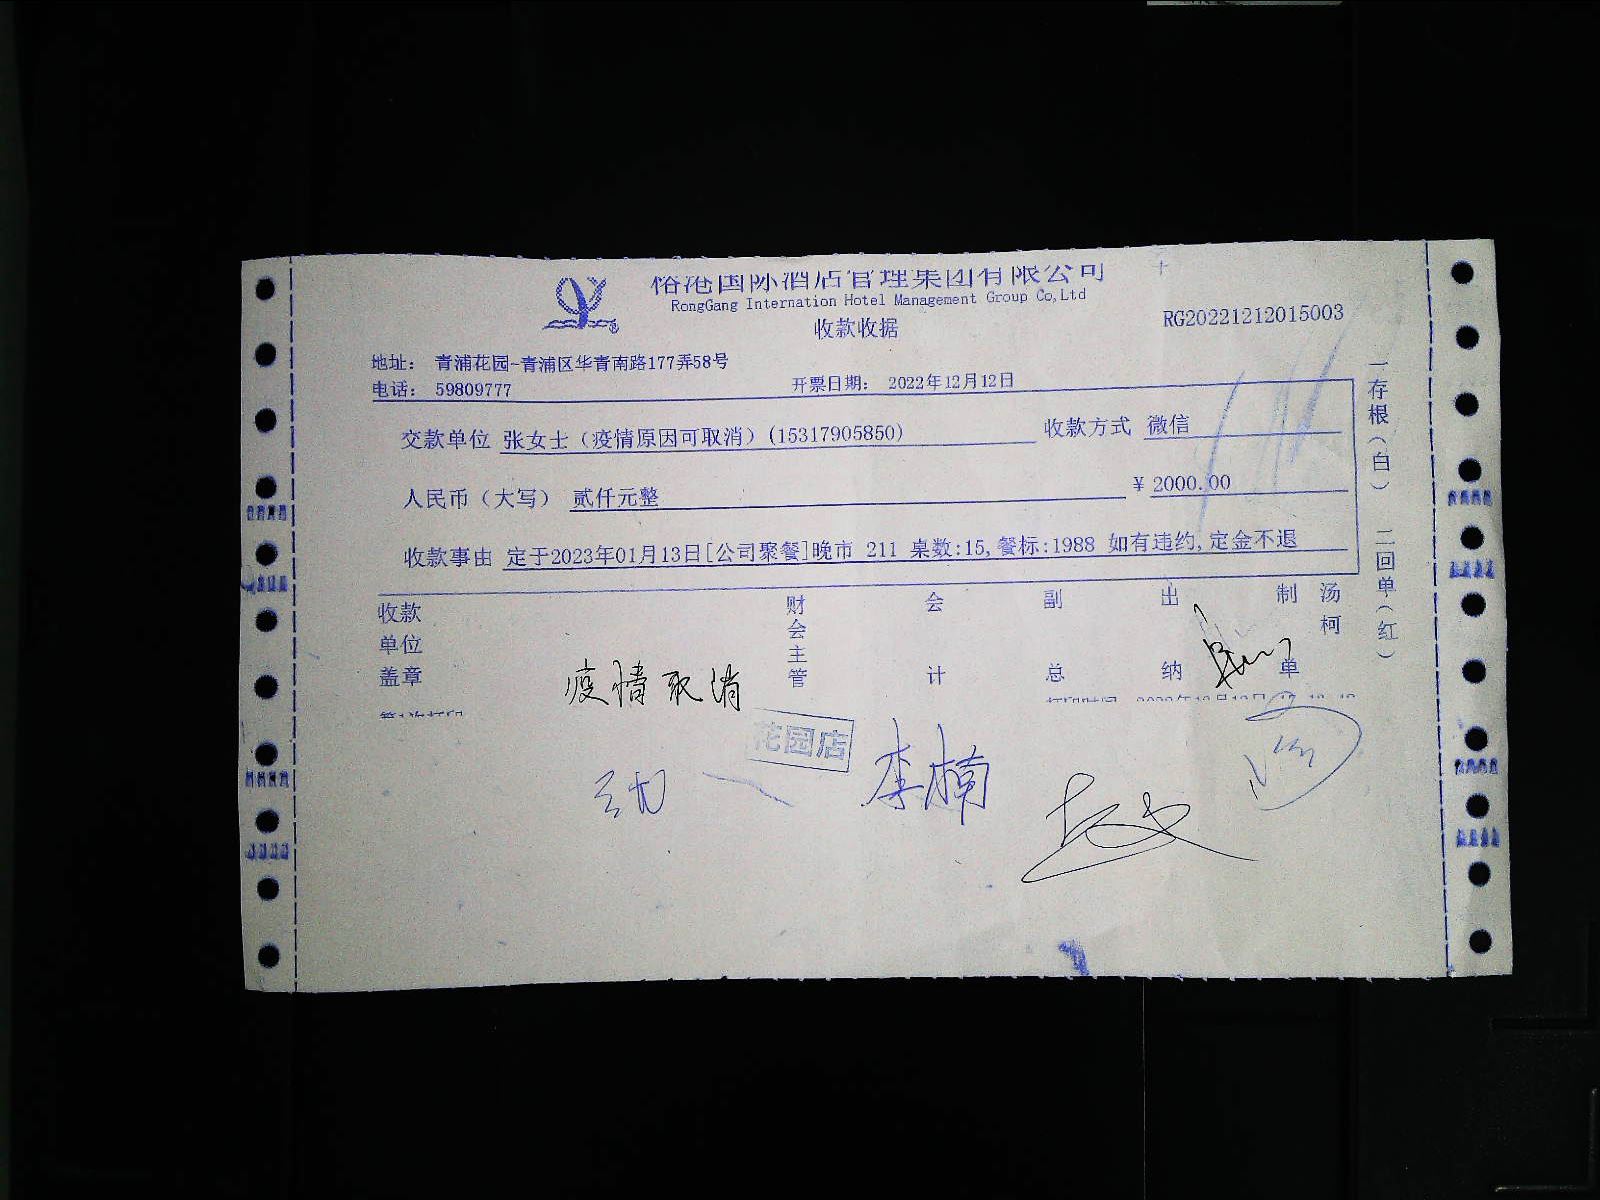 俗港国际酒店管理集团有限公司
RongGang Internation Hotel Management Group Co,Ltd
收款收据
RG20221212015003
地址： 青浦花园-青浦区华青南路177弄58号
电话： 59809777 开票日期： 2022年12月12日
交款单位 张女士（疫情原因可取消）(15317905850) 收款方式 微信
人民币（大写） 贰仟元整 ¥ 2000.00
收款事由 定于2023年01月13日[公司聚餐]晚市 211 桌数:15,餐标:1988 如有违约,定金不退
一存根（白） 二回单（红）
收款单位盖章 财会主管 会计 副总 出纳 制单 汤柯
疫情取消
花园店
李楠